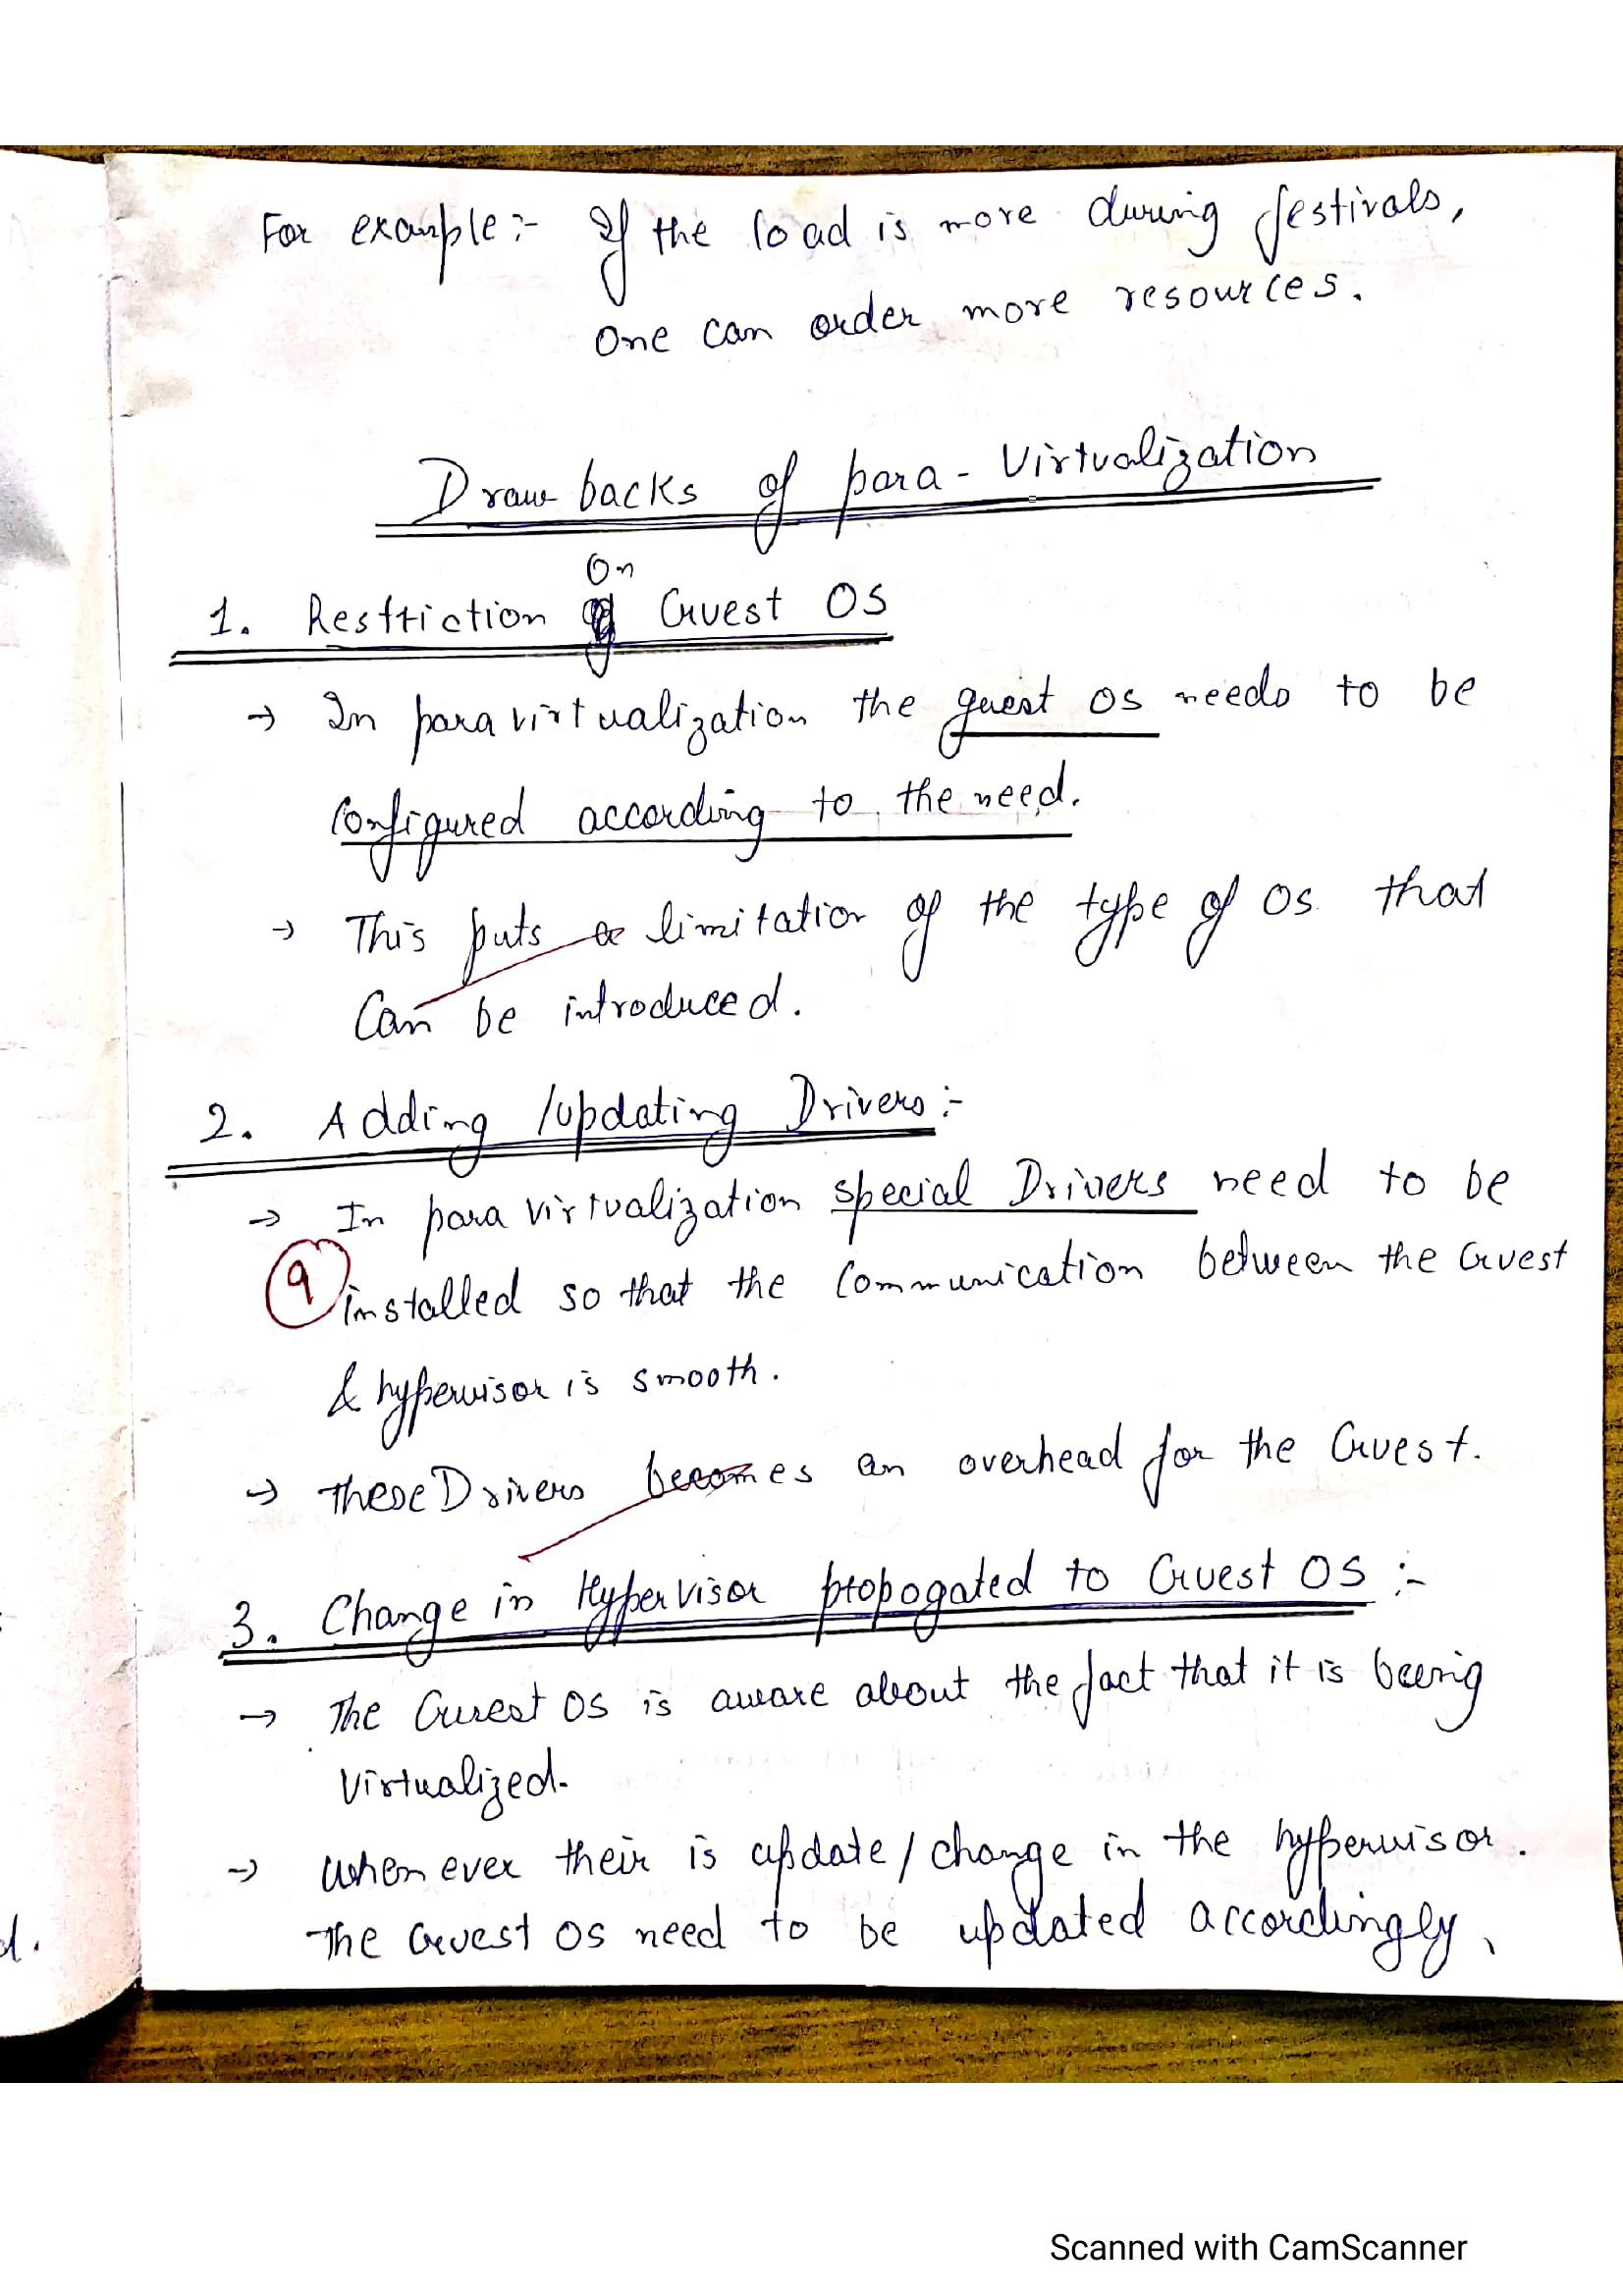 For example :- If the load is more during festivals,
One can order more resources.
Drawbacks of para-Virtualization
On
1. Restriction Guest OS
→ In paravirtualization the guest OS needs to be
Configured according to the need.
→ This puts a limitation of the type of OS that
Can be introduced.
2. Adding /updating Drivers :-
→ In para virtualization special Drivers need to be
9
installed so that the Communication between the Guest
& hypervisor is smooth.
→ These Drivers becomes an overhead for the Guest.
3. Change in Hypervisor propogated to Guest OS :-
→ The Guest OS is aware about the fact that it is being
Virtualized.
→ When ever their is update / change in the hypervisor.
The Guest OS need to be updated accordingly,
d.
Scanned with CamScanner